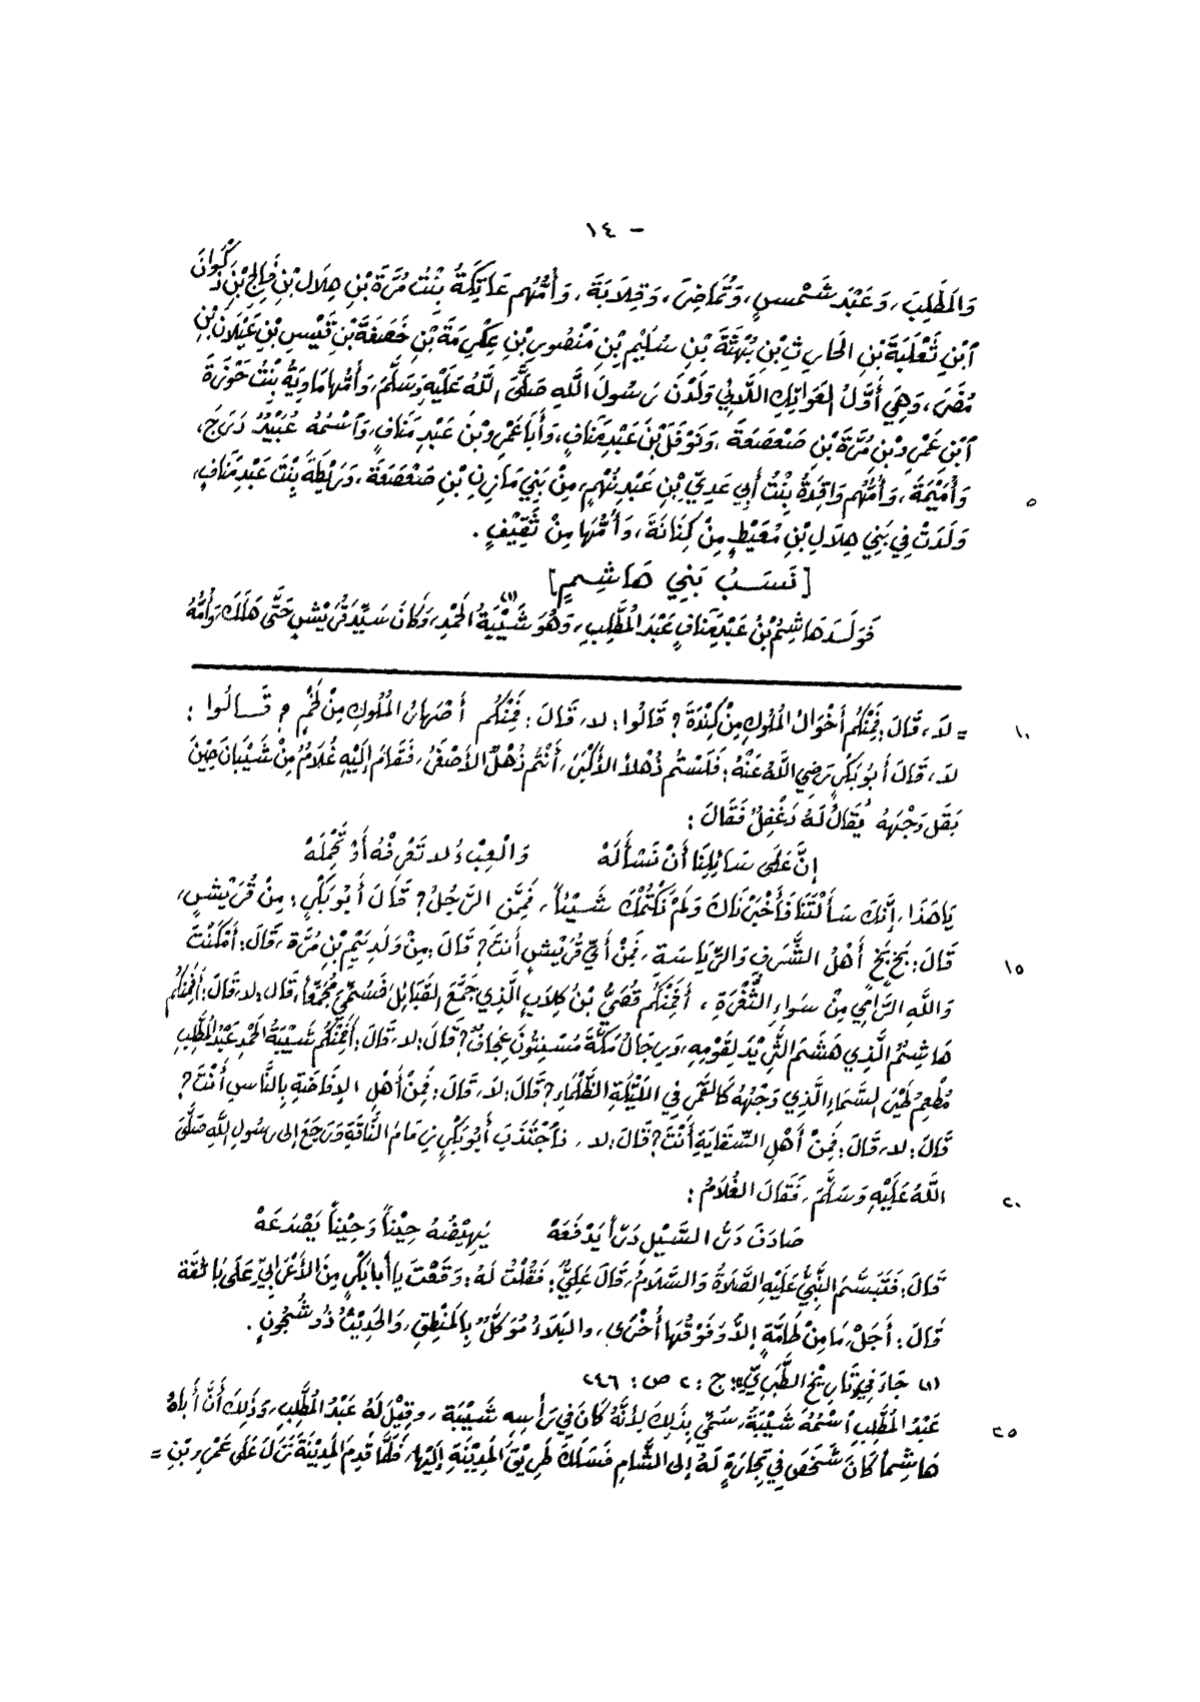 - ١٤
وَالمُطَّلِبَ، وَعَبْدَ شَمْسٍ، وَتُمَاضِرَ، وَقِلَابَةَ، وَأُمُّهُم عَاتِكَةُ بِنْتُ مُرَّةَ بْنِ هِلَالِ بْنِ فَالِجِ بْنِ ذَكْوَانَ
ابْنِ ثَعْلَبَةَ بْنِ الحَارِثِ بْنِ بُهْثَةَ بْنِ سُلَيْمِ بْنِ مَنْصُورِ بْنِ عِكْرِمَةَ بْنِ خَصَفَةَ بْنِ قَيْسِ بْنِ عَيْلَانَ بْنِ
مُضَرَ، وَهِيَ أَوَّلُ العَوَاتِكِ اللَّاتِي وَلَدْنَ رَسُولَ اللَّهِ صَلَّى اللَّهُ عَلَيْهِ وَسَلَّمَ، وَأُمُّهَا مَاوِيَّةُ بِنْتُ حَوْزَةَ
ابْنِ عَمْرِو بْنِ مُرَّةَ بْنِ صَعْصَعَةَ، وَنَوْفَلَ بْنَ عَبْدِ مَنَافٍ، وَأَبَا عَمْرِو بْنَ عَبْدِ مَنَافٍ، وَاسْمُهُ عُبَيْدٌ دَرَجَ،
وَأُمَيْمَةَ، وَأُمُّهُم وَاقِدَةُ بِنْتُ أَبِي عَدِيِّ بْنِ عَبْدِ نُهْمٍ، مِنْ بَنِي مَازِنِ بْنِ صَعْصَعَةَ، وَرَيْطَةَ بِنْتَ عَبْدِ مَنَافٍ، ٥
وَلَدَتْ فِي بَنِي هِلَالِ بْنِ مُعَيْطٍ مِنْ كِنَانَةَ، وَأُمُّهَا مِنْ ثَقِيْفٍ.
[نَسَبُ بَنِي هَاشِمٍ]
فَوَلَدَ هَاشِمُ بْنُ عَبْدِ مَنَافٍ عَبْدَ المُطَّلِبِ، وَهُوَ شَيْبَةُ(١) الحَمْدِ، وَكَانَ سَيِّدَ قُرَيْشٍ حَتَّى هَلَكَ، وَأُمُّهُ
= لَا، قَالَ: فَمِنْكُم أَخْوَالُ المُلُوكِ مِنْ كِنْدَةَ؟ قَالُوا: لا، قَالَ: فَمِنْكُم أَصْهَارُ المُلُوكِ مِنْ لَخْمٍ؟ قَالُوا: ١٠
لا، قَالَ أَبُو بَكْرٍ رَضِيَ اللَّهُ عَنْهُ: فَلَسْتُم ذُهْلَاً الأَكْبَرَ، أَنْتُم ذُهْلٌ الأَصْغَرُ، فَقَامَ إِلَيْهِ غُلَامٌ مِنْ شَيْبَانَ حِيْنَ
بَقَلَ وَجْهَهُ يُقَالُ لَهُ دَغْفِلٌ فَقَالَ:
إِنَّ عَلَى سَائِلِنَا أَنْ نَسْأَلَهْ وَالعِبْءُ لا تَعْرِفْهُ أَوْ تَحْمِلَهْ
يَا هَذَا، إِنَّكَ سَأَلْتَنَا فَأَخْبَرْنَاكَ وَلَمْ نَكْتُمْكَ شَيْئَاً، فَمِمَّن الرَّجُلُ؟ قَالَ أَبُو بَكْرٍ: مِنْ قُرَيْشٍ،
قَالَ: بَخٍ بَخٍ أَهْلُ الشَّرَفِ وَالرِّيَاسَةِ، فَمِنْ أَيِّ قُرَيْشٍ أَنْتَ؟ قَالَ: مِنْ وَلَدِ تَيْمِ بْنِ مُرَّةَ، قَالَ: أَمْكَنْتَ ١٥
وَاللَّهِ الرَّامِيَ مِنْ سَوَاءِ الثُّغْرَةِ، أَفَمِنْكُم قُصَيُّ بْنُ كِلَابٍ الَّذِي جَمَّعَ القَبَائِلَ فَسُمِّيَ مُجَمِّعَاً، قَالَ: لا، قَالَ: أَفَمِنْكُم
هَاشِمٌ الَّذِي هَشَمَ الثَّرِيْدَ لِقَوْمِهِ، وَرِجَالُ مَكَّةَ مُسْنِتُونَ عِجَافٌ؟ قَالَ: لا، قَالَ: أَفَمِنْكُم شَيْبَةُ الحَمْدِ عَبْدُ المُطَّلِبِ
مُطْعِمُ طَيْرِ السَّمَاءِ الَّذِي وَجْهُهُ كَالقَمَرِ فِي اللَّيْلَةِ الظَّلْمَاءِ؟ قَالَ: لا، قَالَ: فَمِنْ أَهْلِ الإِفَاضَةِ بِالنَّاسِ أَنْتَ؟
قَالَ: لا، قَالَ: فَمِنْ أَهْلِ السِّقَايَةِ أَنْتَ؟ قَالَ: لا، فَاجْتَذَبَ أَبُو بَكْرٍ زِمَامَ النَّاقَةِ وَرَجَعَ إلى رسُولِ اللَّهِ صَلَّى
اللَّهُ عَلَيْهِ وَسَلَّمَ، فَقَالَ الغُلَامُ: ٢٠
صَادَفَ دَرُّ السَّيْلِ دَرَّاً يَدْفَعُهْ يَهِيْضُهُ حِيْنَاً وَحِيْنَاً يَصْدَعُهْ
قَالَ: فَتَبَسَّمَ النَّبِيُّ عَلَيْهِ الصَّلَاةُ وَالسَّلَامُ، قَالَ عَلِيٌّ: فَقُلْتُ لَهُ: وَقَعْتَ يا أَبَا بَكْرٍ مِنَ الأَعْرَابِيِّ عَلَى بَاقِعَةٍ
قَالَ: أَجَلْ، مَا مِنْ طَامَّةٍ إِلَّا وَفَوْقَهَا أُخْرَى، والبَلَاءُ مُوَكَّلٌ بِالمَنْطِقِ، وَالحَدِيْثُ ذُو شُجُونٍ.
(١) جَاءَ فِي تَارِيْخِ الطَّبَرِيِّ: ج: ٢ ص: ٢٤٦
عَبْدُ المُطَّلِبِ اسْمُهُ شَيْبَةُ، سُمِّيَ بِذَلِكَ لِأَنَّهُ كَانَ فِي رَأْسِهِ شَيْبَةٌ، وقِيْلَ لَهُ عَبْدُ المُطَّلِبِ، وَذَلِكَ أَنَّ أَبَاهُ ٢٥
هَاشِمَاً كَانَ شَخَصَ فِي تِجَارَةٍ لَهُ إلى الشَّامِ فَسَلَكَ طَرِيْقَ المَدِيْنَةِ إِلَيْهَا، فَلَمَّا قَدِمَ المَدِيْنَةَ نَزَلَ عَلَى عَمْرِو بْنِ =